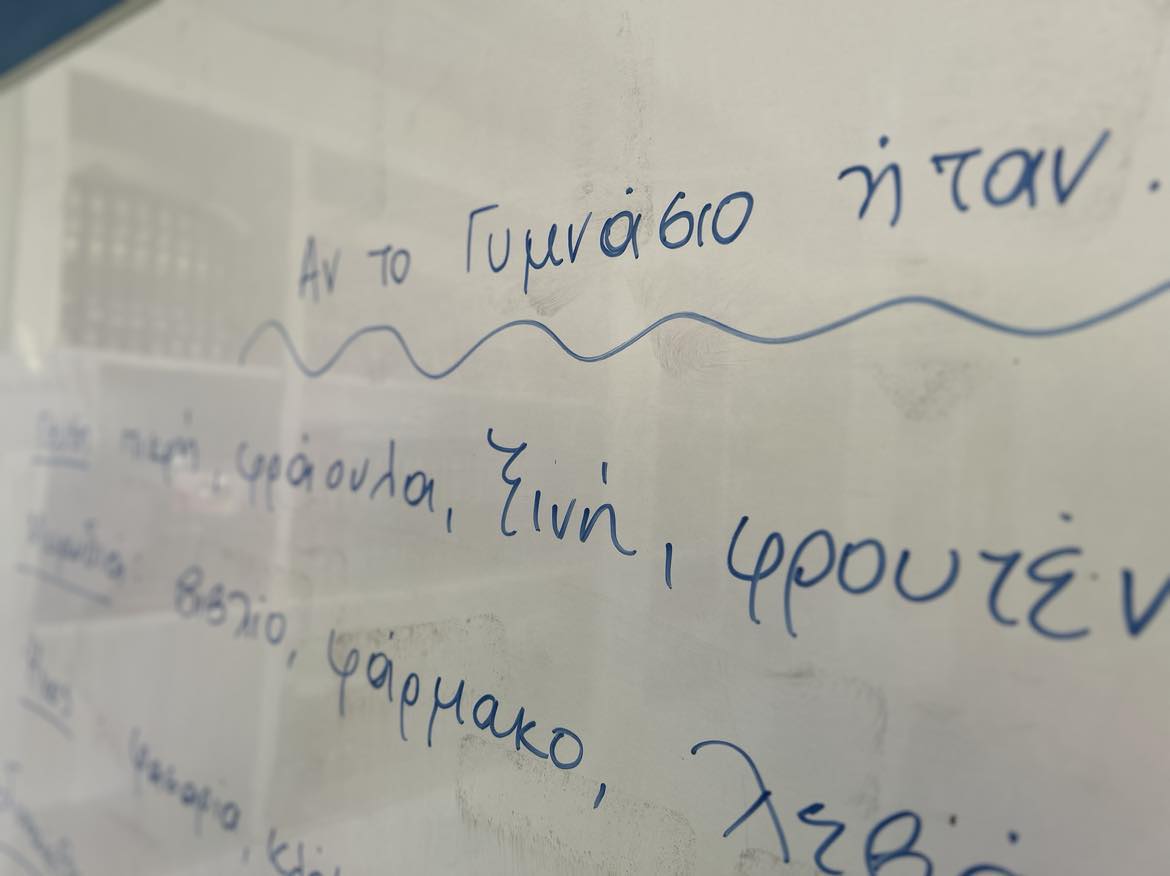 Αν το Γυμνάσιο ήταν.
Γεύση πικρή, φράουλα, ξινή, φρουτέν
Μυρωδιά: βιβλίο, φάρμακο, λεβά
Ήχος φασαρία,